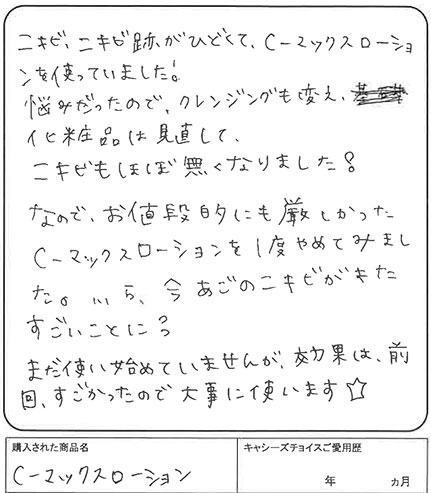 ニキビ、ニキビ跡がひどくて、C-マックスローショ
ンを使っていました!
悩みだったので、クレンジングも変え、
化粧品は見直して、
ニキビもほぼ無くなりました?
なので、お値段的にも厳しかった
C-マックスローションを1度やめてみまし
た。…ら、今あごのニキビがまた
すごいことに??
まだ使い始めていませんが、効果は、前
回、すごかったので大事に使います☆
購入された商品名
キャシーズチョイスご愛用歴
C-マックスローション
年 ヵ月